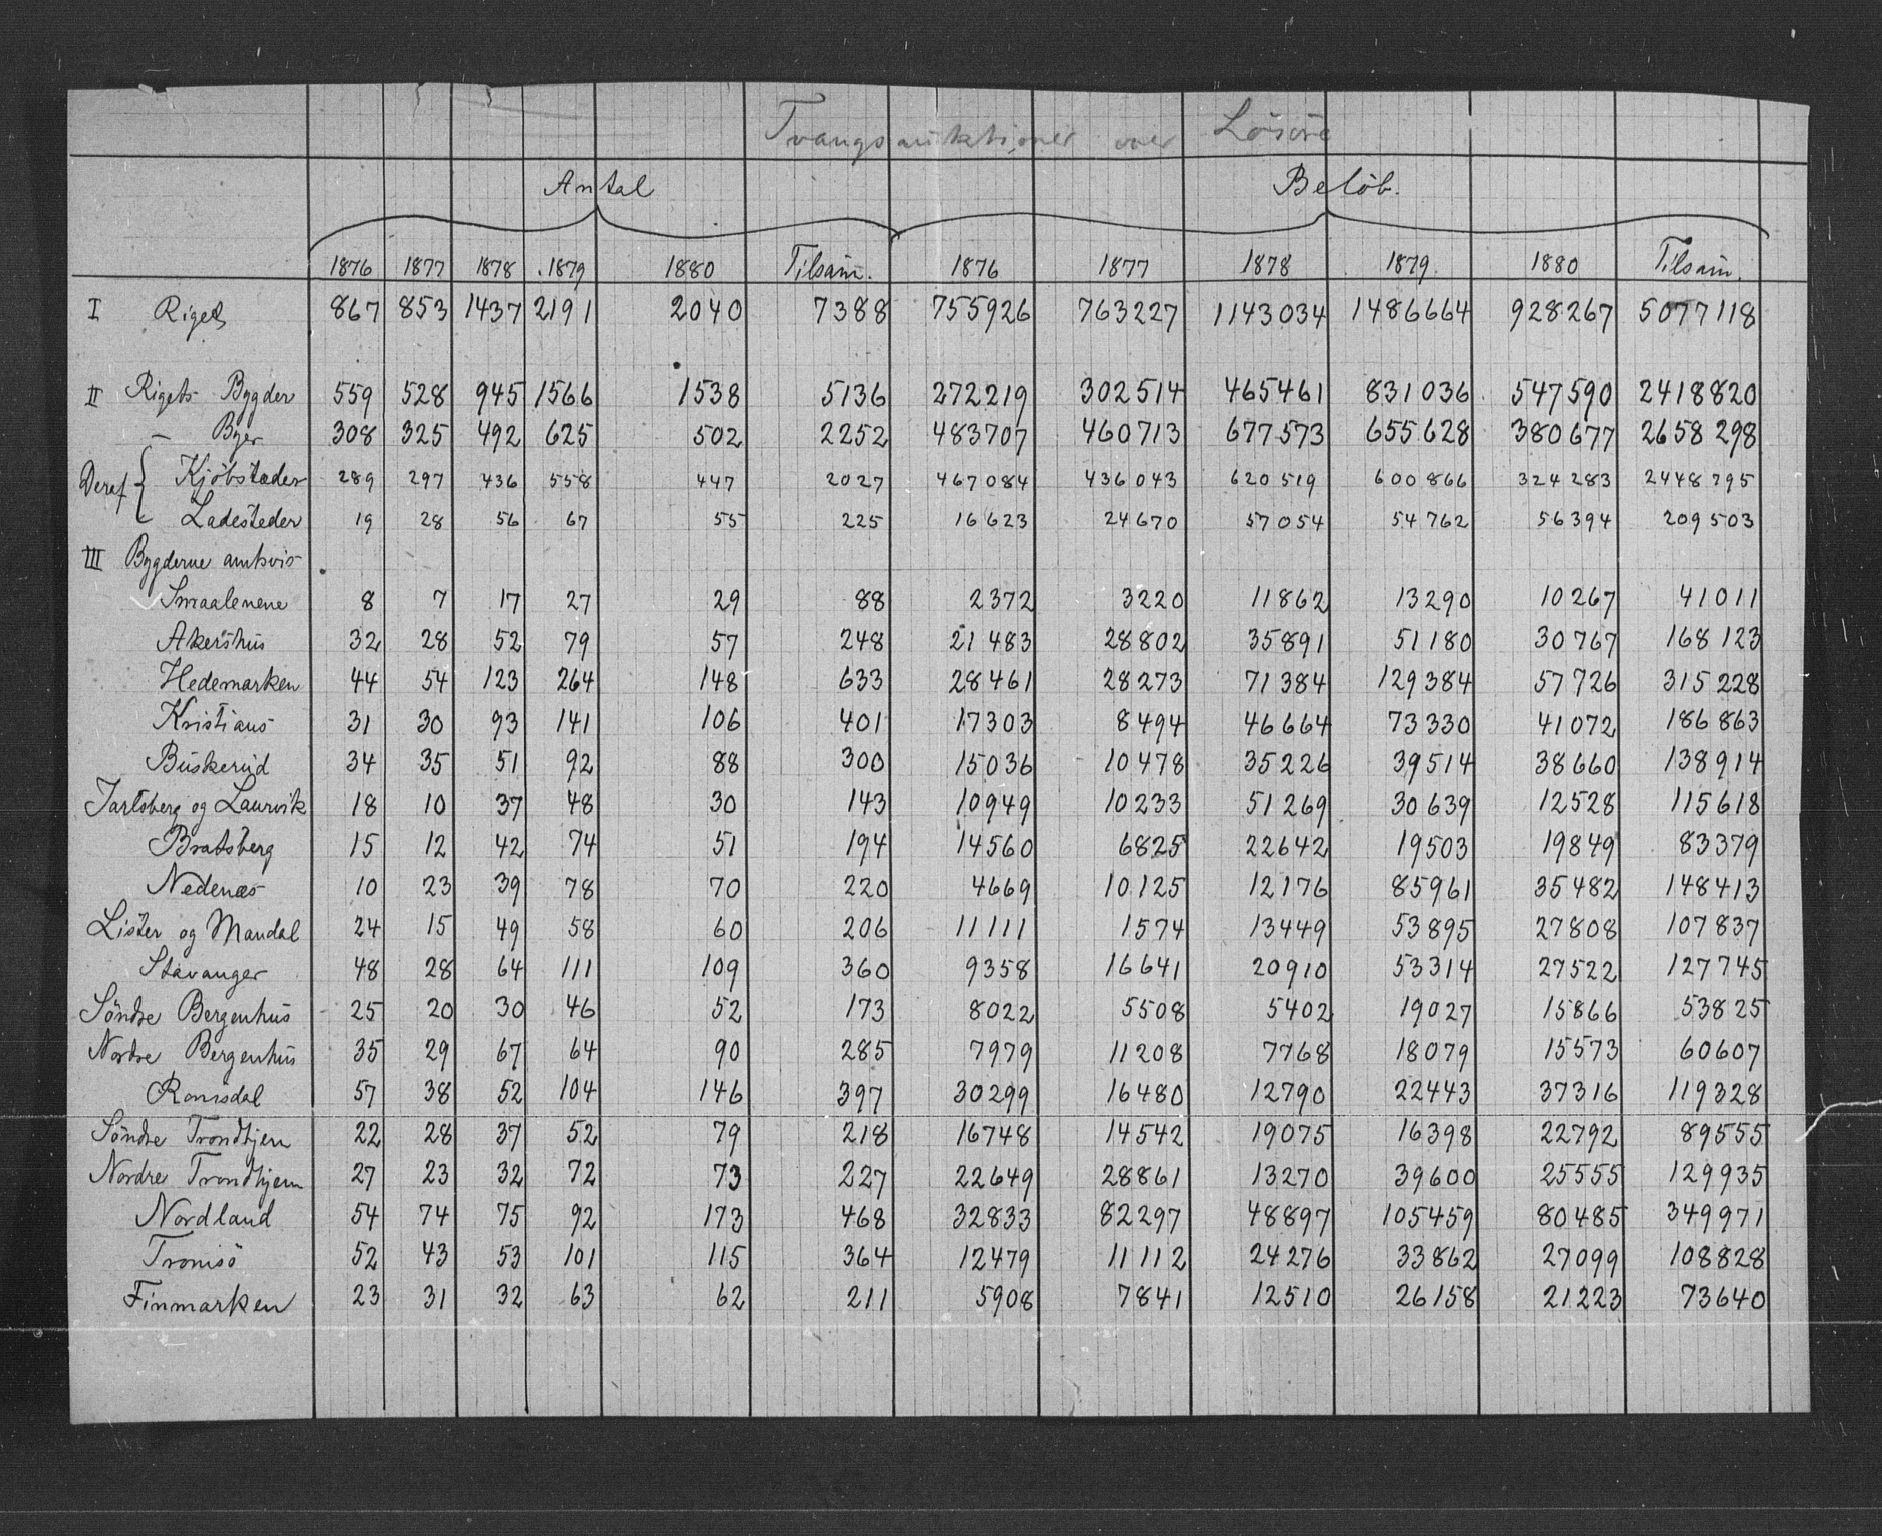 Tvangsauktioner over Løsøre
Antal Beløb.
1876 1877 1878 1879 1880 Tilsam. 1876 1877 1878 1879 1880 Tilsam.
I Riget 867 853 1437 2191 2040 7388 755926 763227 1143034 1486664 928267 5077118
II Rigets Bygder 559 528 945 1566 1538 5136 272219 302514 465461 831036 547590 2418820
— Byer 308 325 492 625 502 2252 483707 460713 677573 655628 380677 2658298
Deraf { Kjøbstæder 289 297 436 558 447 2027 467084 436043 620519 600866 324283 2448795
Ladesteder 19 28 56 67 55 225 16623 24670 57054 54762 56394 209503
III Bygderne amtsvis
Smaalenene 8 7 17 27 29 88 2372 3220 11862 13290 10267 41011
Akershus 32 28 52 79 57 248 21483 28802 35891 51180 30767 168123
Hedemarken 44 54 123 264 148 633 28461 28273 71384 129384 57726 315228
Kristians 31 30 93 141 106 401 17303 8494 46664 73330 41072 186863
Buskerud 34 35 51 92 88 300 15036 10478 35226 39514 38660 138914
Jarlsberg og Laurvik 18 10 37 48 30 143 10949 10233 51269 30639 12528 115618
Bratsberg 15 12 42 74 51 194 14560 6825 22642 19503 19849 83379
Nedenæs 10 23 39 78 70 220 4669 10125 12176 85961 35482 148413
Lister og Mandal 24 15 49 58 60 206 11111 1574 13449 53895 27808 107837
Stavanger 48 28 64 111 109 360 9358 16641 20910 53314 27522 127745
Søndre Bergenhus 25 20 30 46 52 173 8022 5508 5402 19027 15866 53825
Nordre Bergenhus 35 29 67 64 90 285 7979 11208 7768 18079 15573 60607
Romsdal 57 38 52 104 146 397 30299 16480 12790 22443 37316 119328
Søndre Trondhjem 22 28 37 52 79 218 16748 14542 19075 16398 22792 89555
Nordre Trondhjem 27 23 32 72 73 227 22649 28861 13270 39600 25555 129935
Nordland 54 74 75 92 173 468 32833 82297 48897 105459 80485 349971
Tromsø 52 43 53 101 115 364 12479 11112 24276 33862 27099 108828
Finmarken 23 31 32 63 62 211 5908 7841 12510 26158 21223 73640